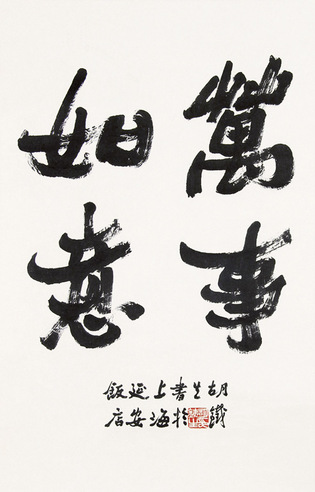 萬事
如意
胡鐵
生
書於
上海
延安
飯店